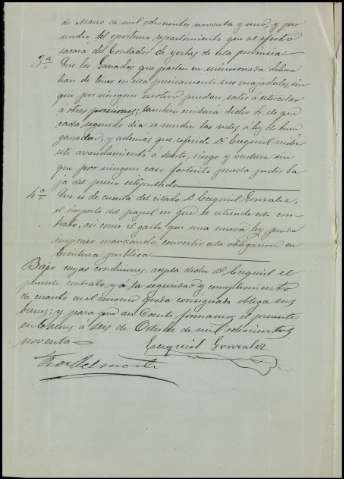 de Marzo de mil ochocientos noventa y uno, y por
medio del oportuno repartimiento que al efecto
sacara del Contador de yerbas de esta provincia
3ª Que los Ganados que pasten en mencionada dehesa
han de tener en ella precisamente sus majadales, sin
que por ningun motivo puedan salir á
á otras posesiones; tambien cuidará dicho Sr. de que
cada segundo dia se muden las redes, á ley de buen
ganadero, y ademas que el referido D. Ezequiel recibe
este arrendamiento á suerte, riesgo y ventura sin
que por ningun caso fortuito pueda pedir ba-
ja del precio estipulado
4ª Que es de cuenta del citado D. Ezequiel Gonzalez
el importe del papel en que se extienda este con-
trato, asi como el gasto que una nueva ley pueda
mandando convertir esta obligacion en
Escritura publica.
Bajo cuyas condiciones, acepta dicho D. Ezequiel el
presente contrato, y á la seguridad y cumplimiento
de cuanto en el mismo queda consignado obliga sus
bienes; y para que asi conste firmamos el presente
en á seis de Octubre de mil ochocientos
noventa
Ezequiel Gonzalez